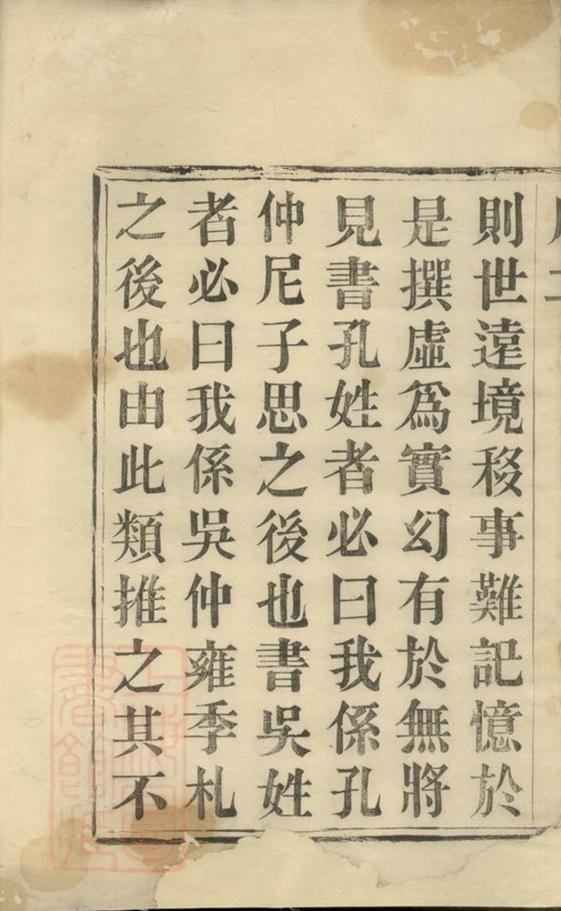 則世遠境移事難記憶於
是撰虛爲實幻有於無將
見書孔姓者必曰我係孔
仲尼子思之後也書吳姓
者必曰我係吳仲雍季札
之後也由此類推之其不